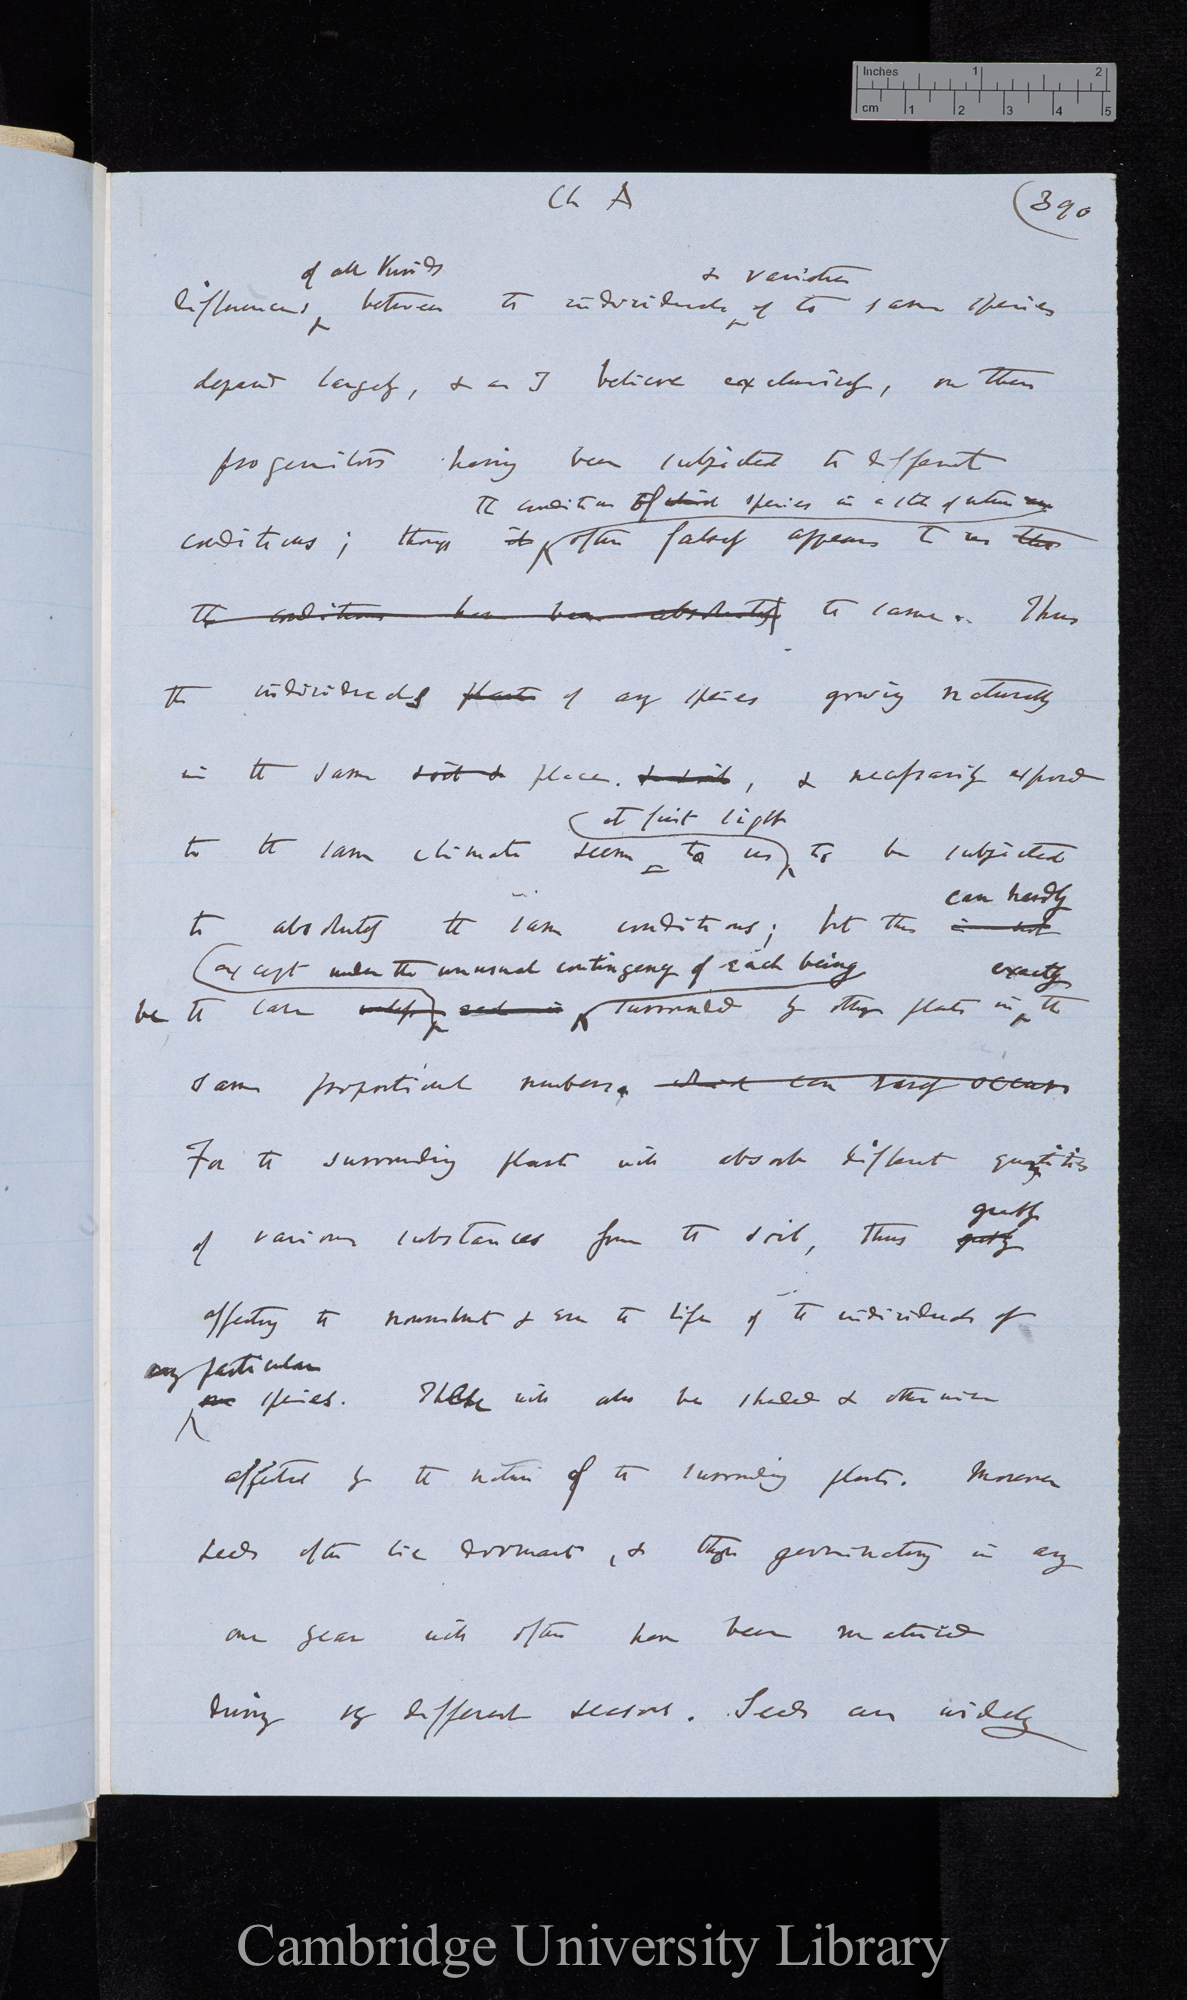 Inches 1 2
cm 1 2 3 4 5
Ch A
(390
of all kinds & varieties
differences between the individuals of the same species
depend largely, & as I believe exclusively, on their
progenitors having been subjected to different
the conditions of each species in a state of nature
conditions; though it often falsely appears to us the
the conditions have been absolutely the same. Thus
the individuals plants of any species growing naturally
in the same soil & place. & soil, & necessarily exposed
at first sight
to the same climate seem to us to be subjected
can hardly
to absolutely the same conditions; but this is not
except under the unusual contingency of each being exactly
be the same unless each is surrounded by other plants in the
same proportional numbers. which can rarely occur.
For the surrounding plants will absorb different quantities
greatly
of various substances from the soil, thus greatly
affecting the nourishment & even the life of the individuals of
any particular
one species. These will also be shaded & otherwise
affected by the nature of the surrounding plants. Moreover
seeds often lie dormant, & those germinating in any
one year will often have been matured
during very different seasons. Seeds are widely
Cambridge University Library